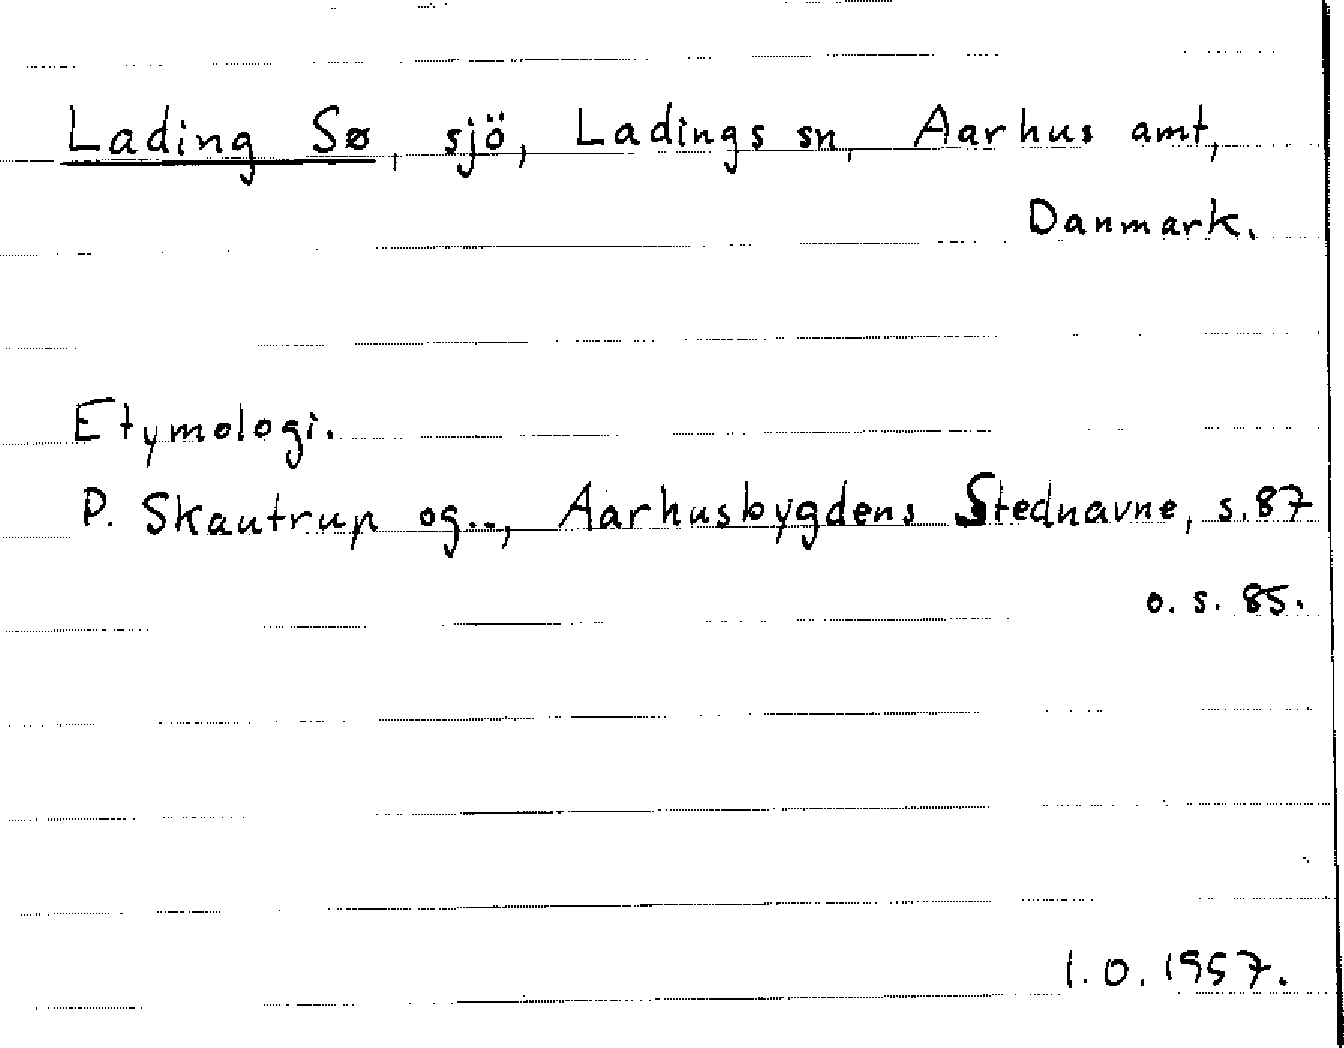 Lading Sø, sjö, Ladings sn, Aarhus amt,
Danmark.
Etymologi.
P. Skautrup og.., Aarhusbygdens Stednavne, s.87
o. s. 85.
I.O. 1957.